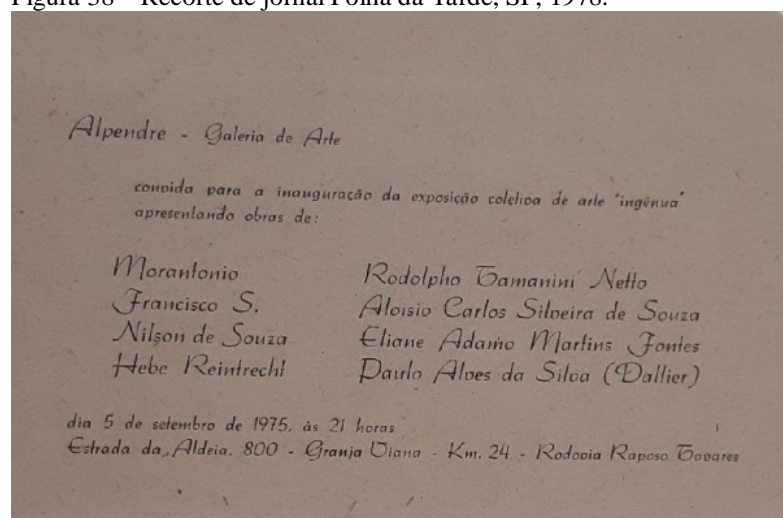 Figura 38 – Recorte de jornal Folha da Tarde, SP, 1978.
Alpendre - Galeria de Arte
convida para a inauguração da exposição coletiva de arte "ingênua"
apresentando obras de:
Morantonio
Francisco S.
Nilson de Souza
Hebe Reintrecht
Rodolpho Tamanini Netto
Aloisio Carlos Silveira de Souza
Eliane Adamo Martins Fontes
Paulo Alves da Silva (Dallier)
dia 5 de setembro de 1975, às 21 horas
Estrada da Aldeia, 800 - Granja Viana - Km. 24 - Rodovia Raposo Tavares